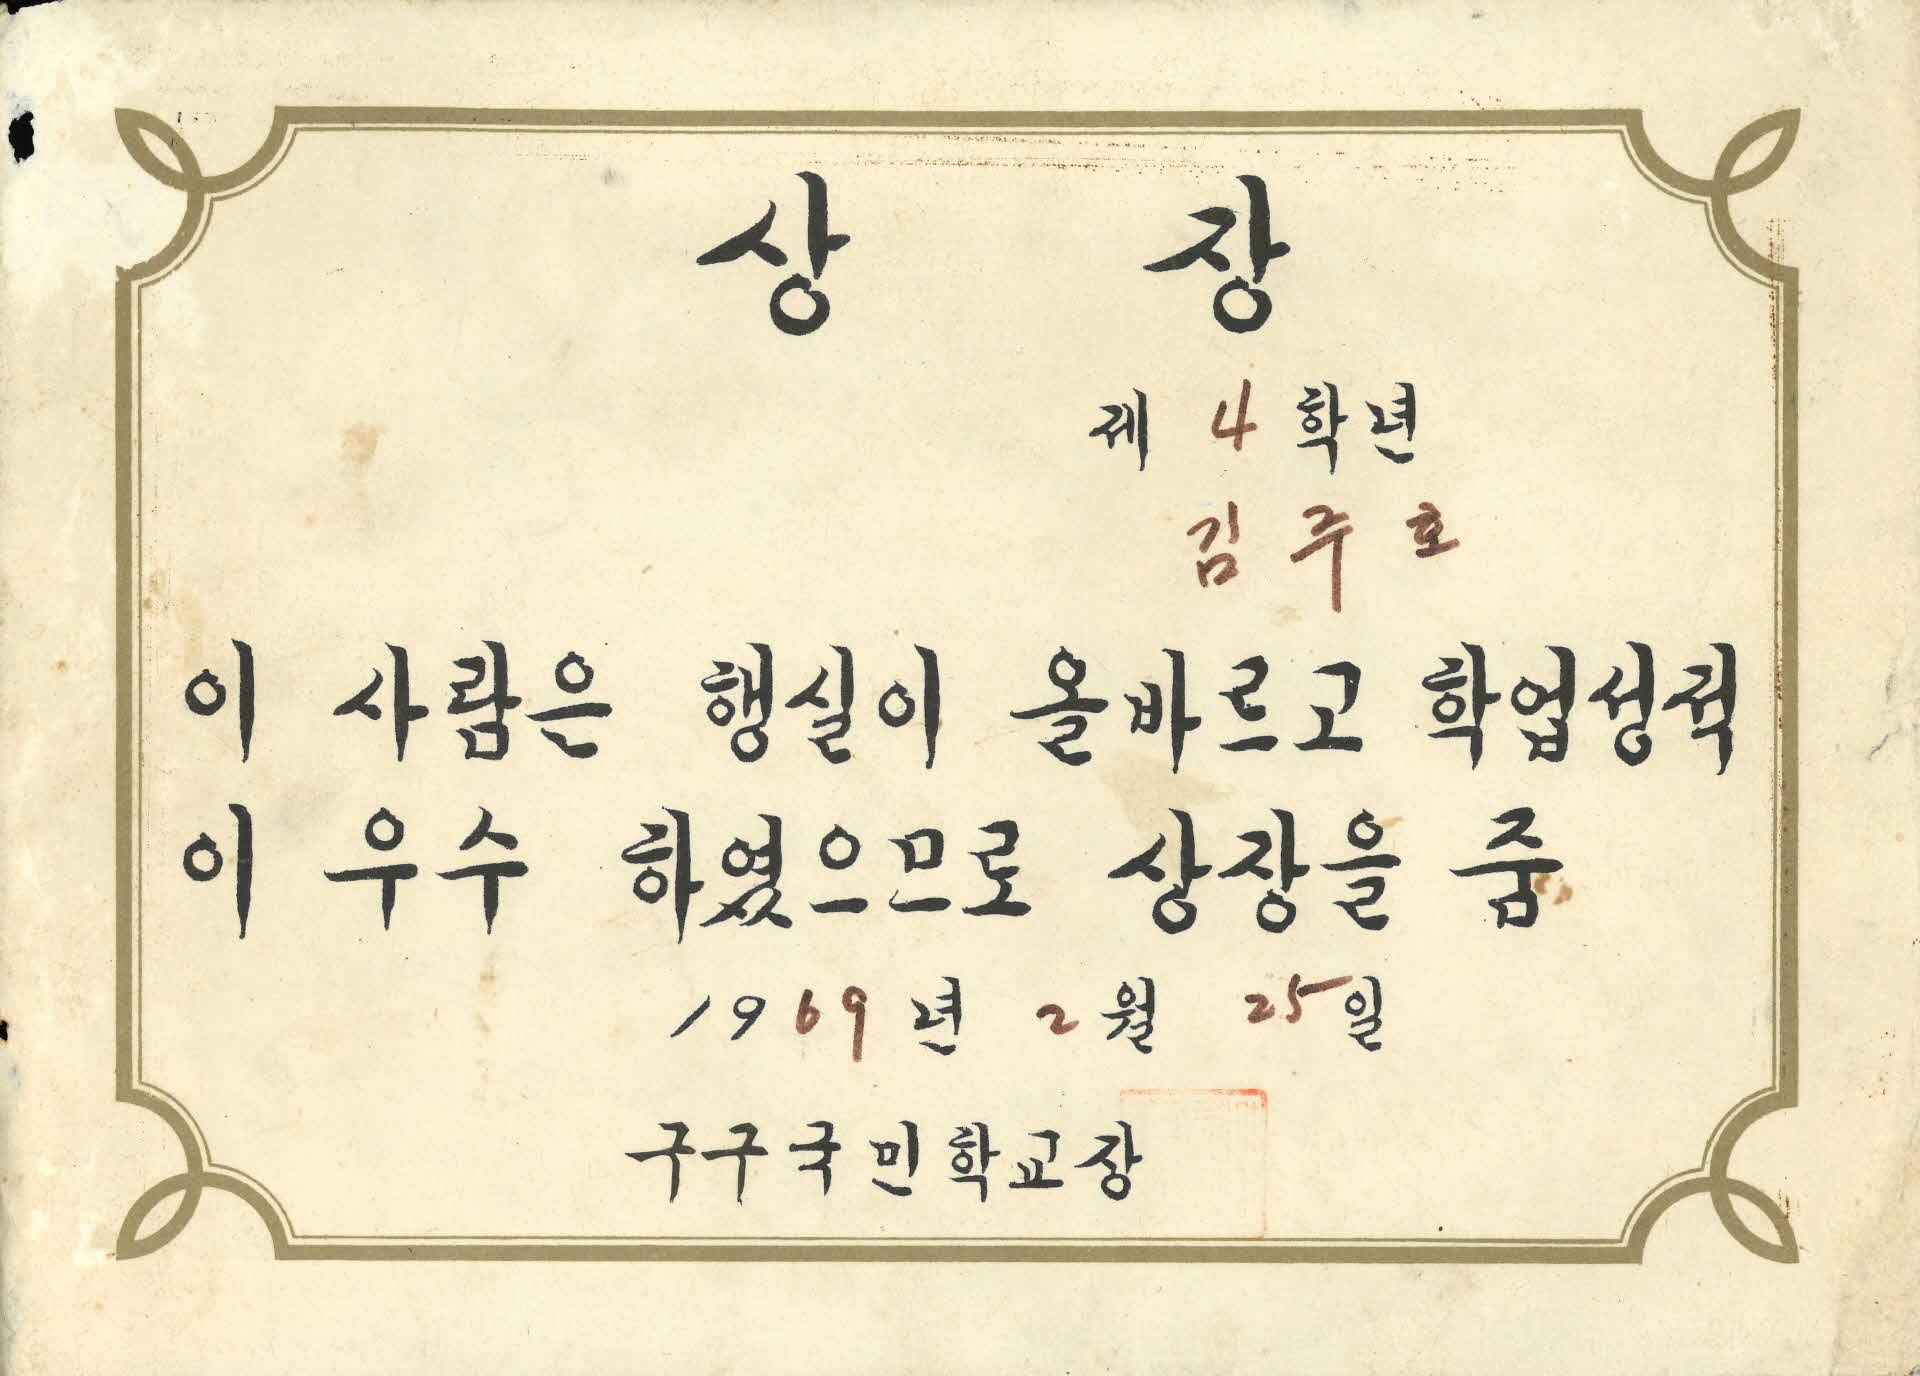 상 장
제 4 학년
김 주 호
이 사람은 행실이 올바르고 학업성적
이 우수 하였으므로 상장을 줌
1969년 2월 25일
구구국민학교장